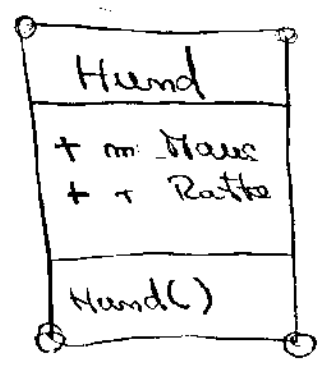 Hund
+ m: Maus
+ r Ratte
Hund()